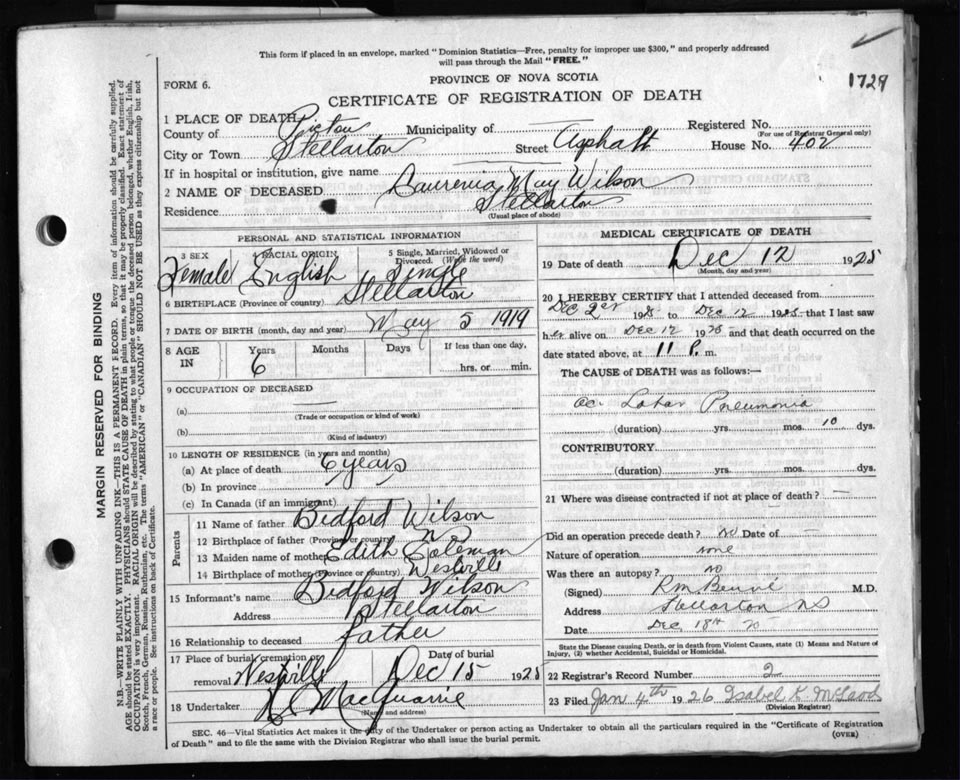 This form if placed in an envelope, marked "Dominion Statistics—Free, penalty for improper use $300," and properly addressed
will pass through the Mail "FREE."
PROVINCE OF NOVA SCOTIA
1729
FORM 6.
CERTIFICATE OF REGISTRATION OF DEATH
1 PLACE OF DEATH
County of Pictou Municipality of Registered No.
(For use of Registrar General only)
City or Town Stellarton Street Asphalt House No. 402
If in hospital or institution, give name
2 NAME OF DECEASED May Wilson
Residence Stellarton
(Usual place of abode)
PERSONAL AND STATISTICAL INFORMATION
3 SEX 4 RACIAL ORIGIN 5 Single, Married, Widowed or Divorced. (Write the word)
Female English Single
6 BIRTHPLACE (Province or country) Stellarton
7 DATE OF BIRTH (month, day and year) May 5 1919
8 AGE IN Years Months Days If less than one day,
6 hrs. or min.
9 OCCUPATION OF DECEASED
(a)
(Trade or occupation or kind of work)
(b)
(Kind of industry)
10 LENGTH OF RESIDENCE (in years and months)
(a) At place of death 6 years
(b) In province
(c) In Canada (if an immigrant)
Parents
11 Name of father Bedford Wilson
12 Birthplace of father (Province or country) NS
13 Maiden name of mother Edith Coleman
14 Birthplace of mother (Province or country) Westville
15 Informant's name Bedford Wilson
Address Stellarton
16 Relationship to deceased father
17 Place of burial, cremation or removal Westville Date of burial Dec 15 1925
18 Undertaker MacQuarrie
(Name and address)
MEDICAL CERTIFICATE OF DEATH
19 Date of death Dec 12 1925
(Month, day and year)
20 I HEREBY CERTIFY that I attended deceased from
Dec 2 1925 to Dec 12 1925 that I last saw
her alive on Dec 12 1925 and that death occurred on the
date stated above, at 11 P. m.
The CAUSE of DEATH was as follows:—
ac. Lobar Pneumonia
(duration) yrs. mos. 10 dys.
CONTRIBUTORY
(duration) yrs. mos. dys.
21 Where was disease contracted if not at place of death? —
Did an operation precede death? no Date of
Nature of operation none
Was there an autopsy? no
(Signed) M.D.
Address Stellarton NS
Date Dec 18th 25
State the Disease causing Death, or in death from Violent Causes, state (1) Means and Nature of
Injury, (2) whether Accidental, Suicidal or Homicidal.
22 Registrar's Record Number 2
23 Filed Jan 4th 1926 Isabel K McLeod
(Division Registrar)
SEC. 46—Vital Statistics Act makes it the duty of the Undertaker or person acting as Undertaker to obtain all the particulars required in the "Certificate of Registration
of Death" and to file the same with the Division Registrar who shall issue the burial permit. (OVER)
MARGIN RESERVED FOR BINDING
N.B.—WRITE PLAINLY WITH UNFADING INK—THIS IS A PERMANENT RECORD. Every item of information should be carefully supplied.
AGE should be stated EXACTLY. PHYSICIANS should STATE CAUSE OF DEATH in plain terms, so that it may be properly classified. Exact statement of
OCCUPATION is very important. RACIAL ORIGIN will be described by stating to what people or tongue the deceased person belonged, whether English, Irish,
Scotch, French, German, Russian, Ruthenian, etc. The terms "AMERICAN" or "CANADIAN" SHOULD NOT BE USED as they express citizenship but not
a race or people. See instructions on back of Certificate.